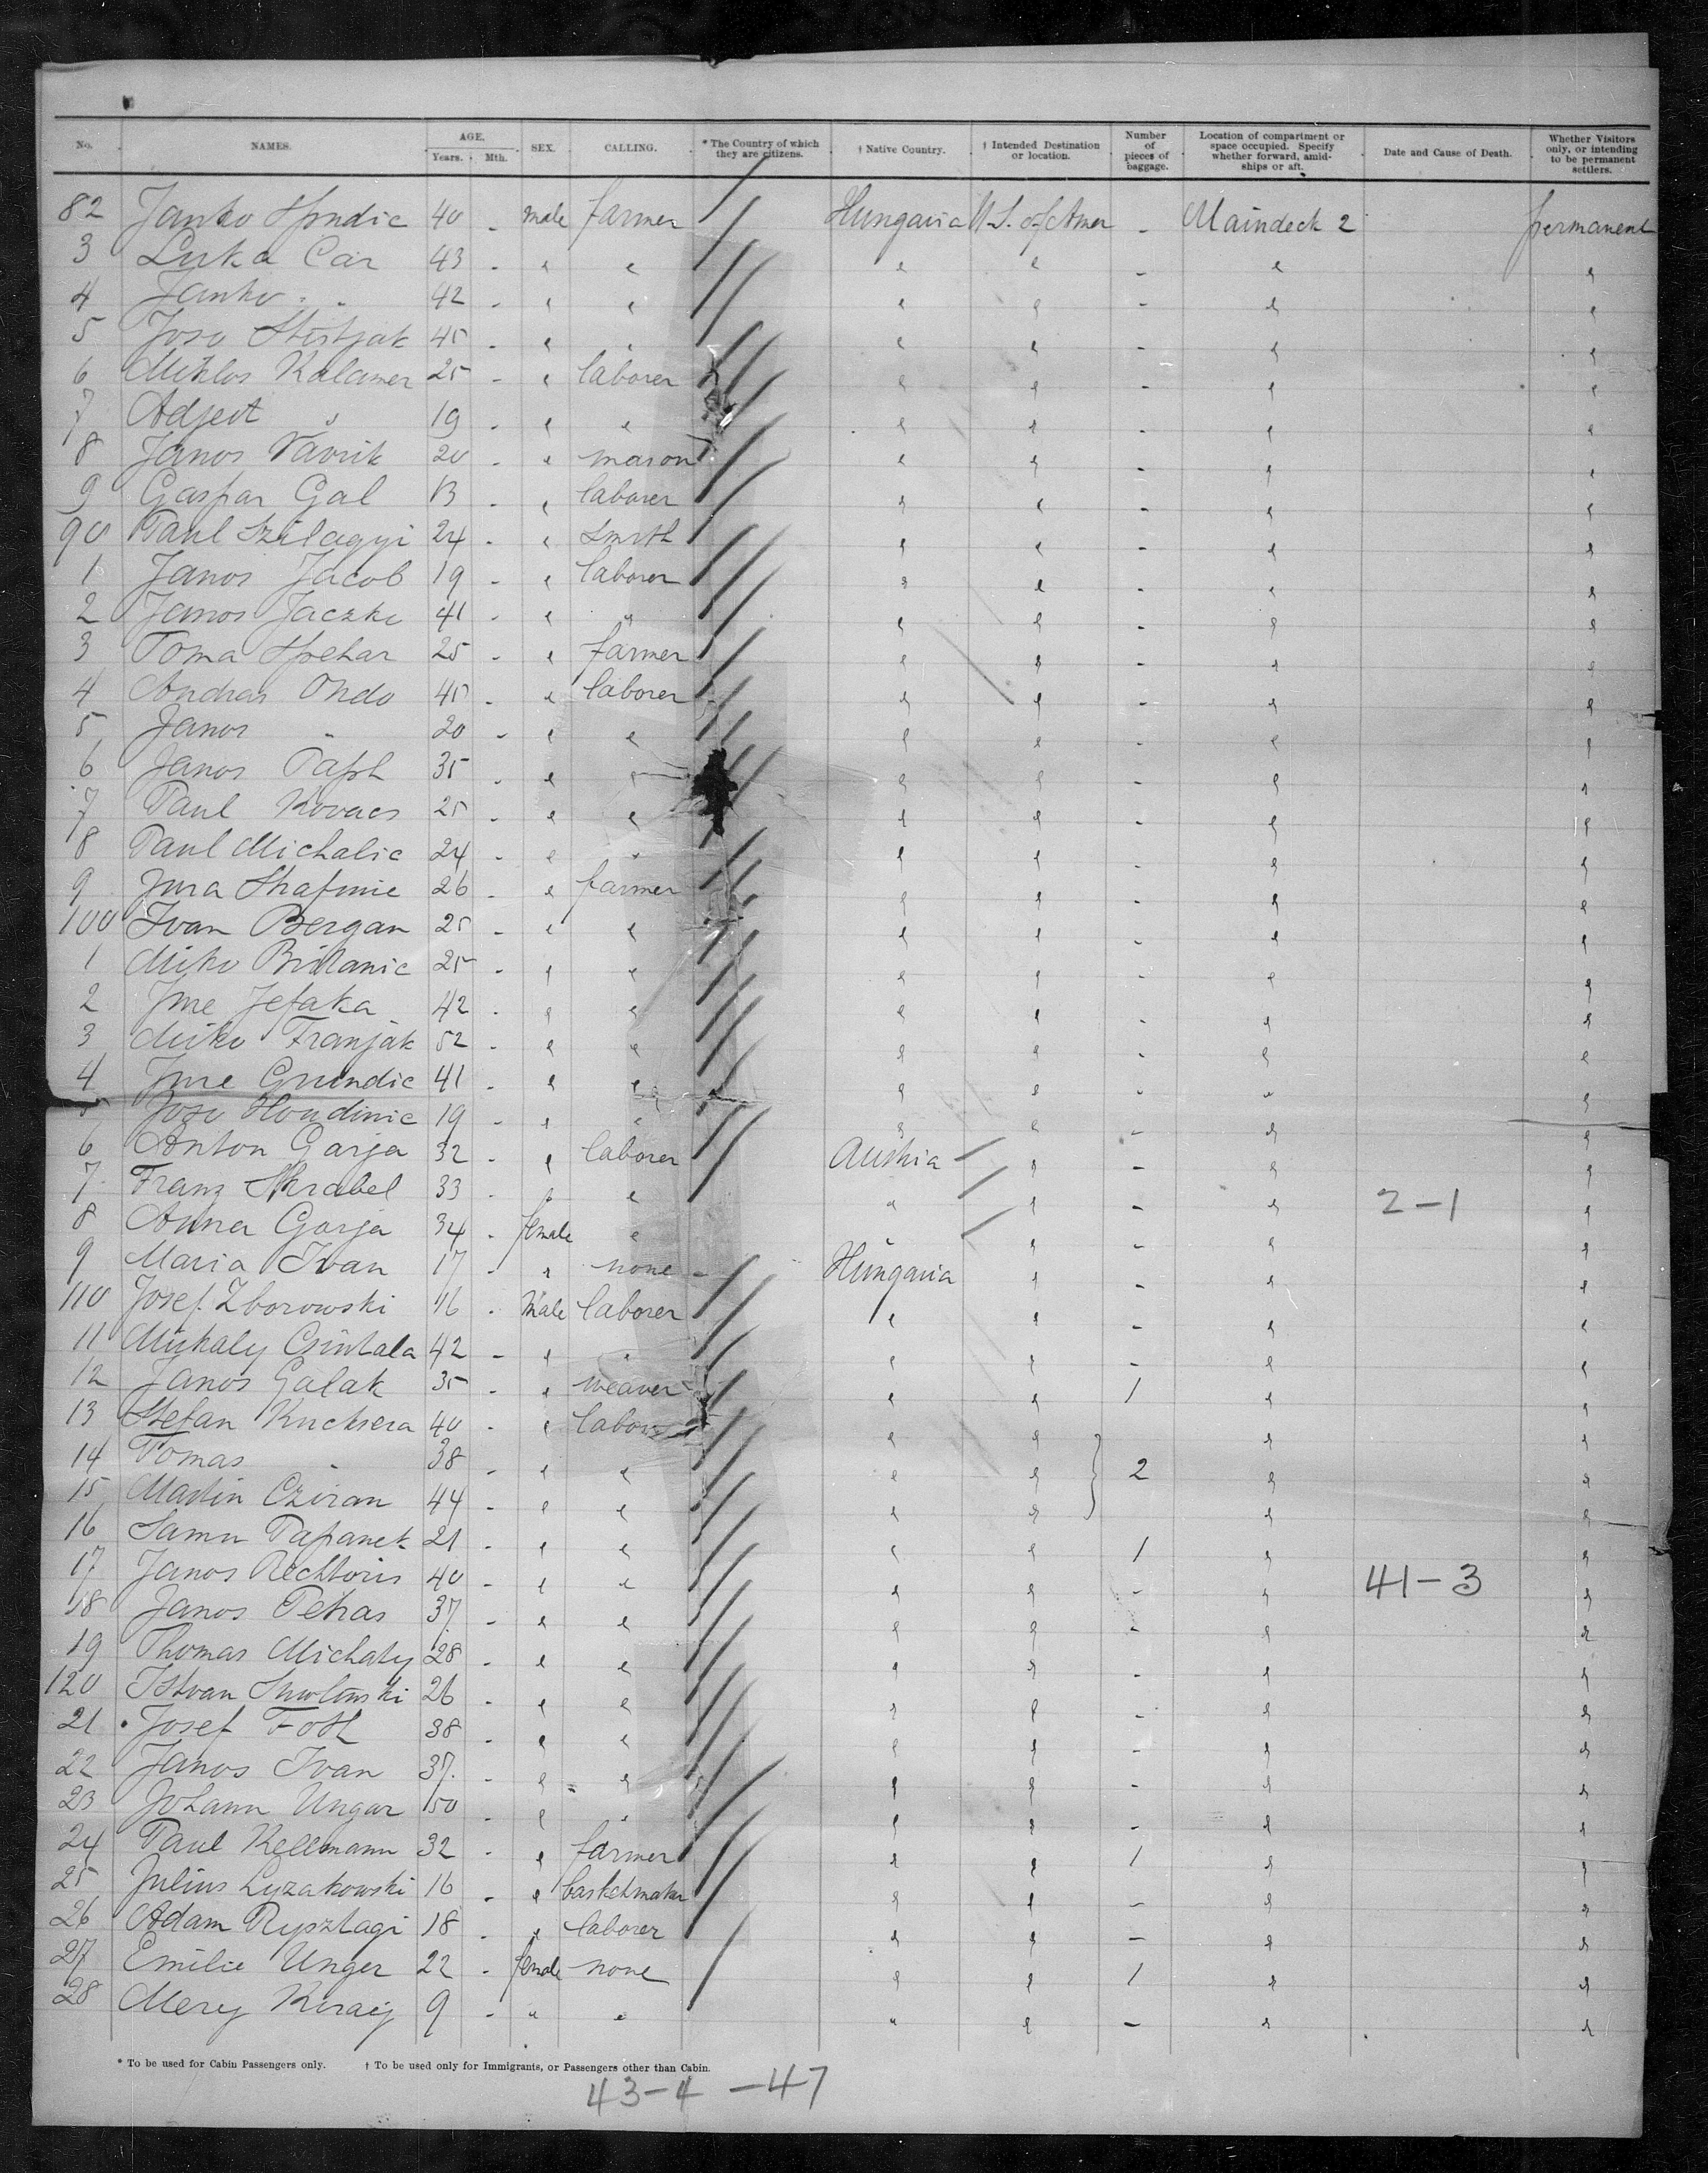 No. NAMES. AGE. Years. Mth. SEX. CALLING. * The Country of which they are citizens. † Native Country. † Intended Destination or location. Number of pieces of baggage. Location of compartment or space occupied. Specify whether forward, amidships or aft. Date and Cause of Death. Whether Visitors only, or intending to be permanent settlers.
82 Janko 40 - male farmer Hungaria U.S. of Amer - Maindeck 2 permanent
3 Luka Car 43 - " " " " - " "
4 Janko " 42 - " " " " - " "
5 Joso 45 - " " " " - " "
6 Miklos Kalamer 25 - " laborer " " - " "
7 " 19 - " " " " - " "
8 Janos Vavrik 20 - " mason " " - " "
9 Gaspar Gal - " laborer " " - " "
90 Paul Szilagyi 24 - " Smith " " - " "
1 Janos Jacob 19 - " laborer " " - " "
2 Janos Jaczko 41 - " " " " - " "
3 Toma Spehar 25 - " farmer " " - " "
4 Andras Ondo 45 - " laborer " " - " "
5 Janos " 20 - " " " " - " "
6 Janos 35 - " " " " - " "
7 Paul Kovacs 25 - " " " " - " "
8 Paul Michalic 24 - " " " " - " "
9 Jura 26 - " farmer " " - " "
100 Ivan Bergan 25 - " " " " - " "
1 Miko 25 - " " " " - " "
2 Jure 42 - " " " " - " "
3 Miko Franjak 52 - " " " " - " "
4 Jure Grundic 41 - " " " " - " "
5 Joso 19 - " " " " - " "
6 Anton Garja 32 - " laborer Austria " - " "
7 Franz Skrabel 33 - " " " " - " 2-1 "
8 Anna Garja 34 - female " " " - " "
9 Maria Ivan 17 - " none - Hungaria " - " "
110 Josef Zborowski 46 - Male laborer " " - " "
11 Mickaly 42 - " " " " - " "
12 Janos Galak 35 - " weaver " " 1 " "
13 Stefan 40 - " laborer " " " "
14 Tomas " 38 - " " " " 2 " "
15 Martin Cziran 44 - " " " " " "
16 Samu Papanek 21 - " " " " 1 " "
17 Janos Rechtoris 40 - " " " " - " 41-3 "
18 Janos Petras 37 - " " " " - " "
19 Thomas Michaly 28 - " " " " - " "
120 Istvan 26 - " " " " - " "
21 Josef Toth 38 - " " " " - " "
22 Janos Ivan 37 - " " " " - " "
23 Johann Ungar 50 - " " " " - " "
24 Paul Kellmann 32 - " farmer " " 1 " "
25 Julius Lyzakowski 16 - " basketmaker " " - " "
26 Adam 18 - " laborer " " - " "
27 Emilie Unger 22 - female none " " 1 " "
28 Mery 9 - " " " " - " "
* To be used for Cabin Passengers only. † To be used only for Immigrants, or Passengers other than Cabin.
43-4 -47